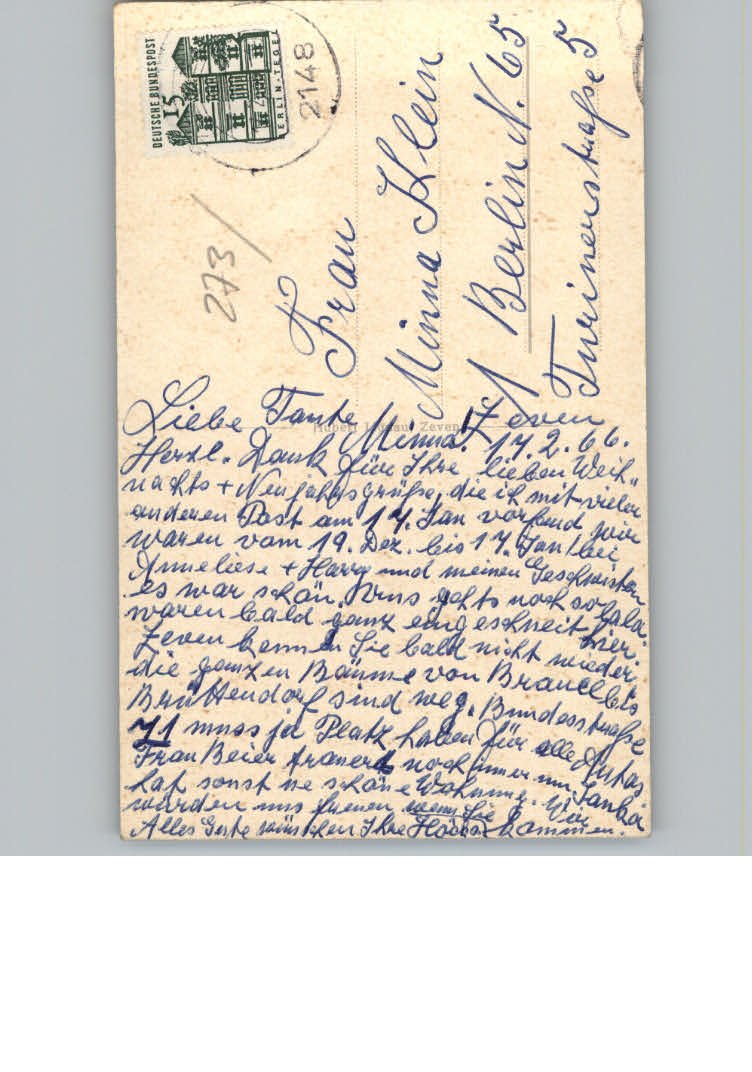 DEUTSCHE BUNDESPOST
15
BERLIN-TEGEL
2148
273/
Frau
Minna Klein
1 Berlin N. 65
Turinerstraße 5
Liebe Tante Minna! Zeven
17.2.66.
Herzl. Dank für Ihre lieben Weih"
nachts + Neujahrsgrüße, die ich mit vieler
anderen Post am 17. Jan vorfand wir
waren vom 19. Dez. bis 17. Jan bei
Anneliese + Harry und meinen Geschwistern
es war schön. Uns gehts noch so lala.
waren bald ganz eingeschneit hier.
Zeven kennen Sie bald nicht wieder.
die ganzen Bäume von Brauel bis
Brüttendorf sind weg. Bundesstraße
71 muss ja Platz haben für alle Autos
Frau Beier trauert noch immer um
hat sonst ne schöne Wohnung. Wir
würden uns freuen wenn Sie kommen.
Alles Gute wünschen Ihre